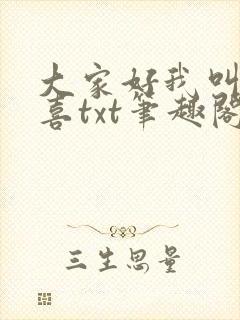 大家好我叫
喜txt笔趣阁
三生思量